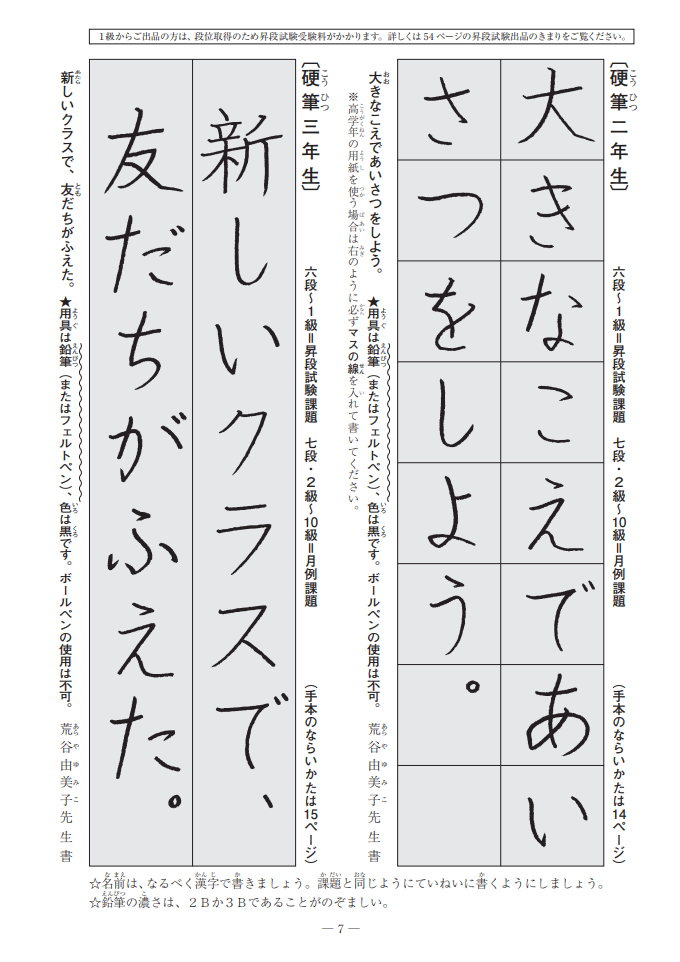 １級からご出品の方は、段位取得のため昇段試験受験料がかかります。詳しくは54ページの昇段試験出品のきまりをご覧ください。
〔硬筆二年生〕 六段～１級＝昇段試験課題 七段・２級～10級＝月例課題 （手本のならいかたは14ページ）
こうひつ
大きなこえであい
さつをしよう。
大きなこえであいさつをしよう。 ★用具は鉛筆（またはフェルトペン）、色は黒です。ボールペンの使用は不可。 荒谷由美子先生書
おお ようぐ えんぴつ いろ くろ あらや ゆみこ
※高学年の用紙を使う場合は右のように必ずマスの線を入れて書いてください。
こうがくねん ようし つか ばあい みぎ かなら せん い か
〔硬筆三年生〕 六段～１級＝昇段試験課題 七段・２級～10級＝月例課題 （手本のならいかたは15ページ）
こうひつ
新しいクラスで、
友だちがふえた。
新しいクラスで、友だちがふえた。 ★用具は鉛筆（またはフェルトペン）、色は黒です。ボールペンの使用は不可。 荒谷由美子先生書
あたら とも ようぐ えんぴつ いろ くろ あらや ゆみこ
☆名前は、なるべく漢字で書きましょう。課題と同じようにていねいに書くようにしましょう。
なまえ かんじ か かだい おな か
☆鉛筆の濃さは、２Ｂか３Ｂであることがのぞましい。
えんぴつ こ
― 7 ―